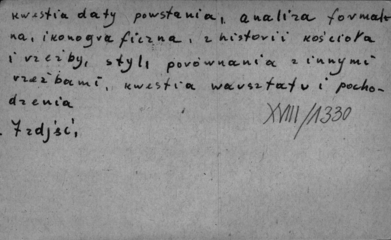 kwestia daty powstania, analiza formal-
na, ikonograficzna, z historii kościoła
i rzeźby, styl, porównania z innymi
rzeźbami, kwestia warsztatu i pocho-
dzenia
7 zdjęć,
XVIII/1330